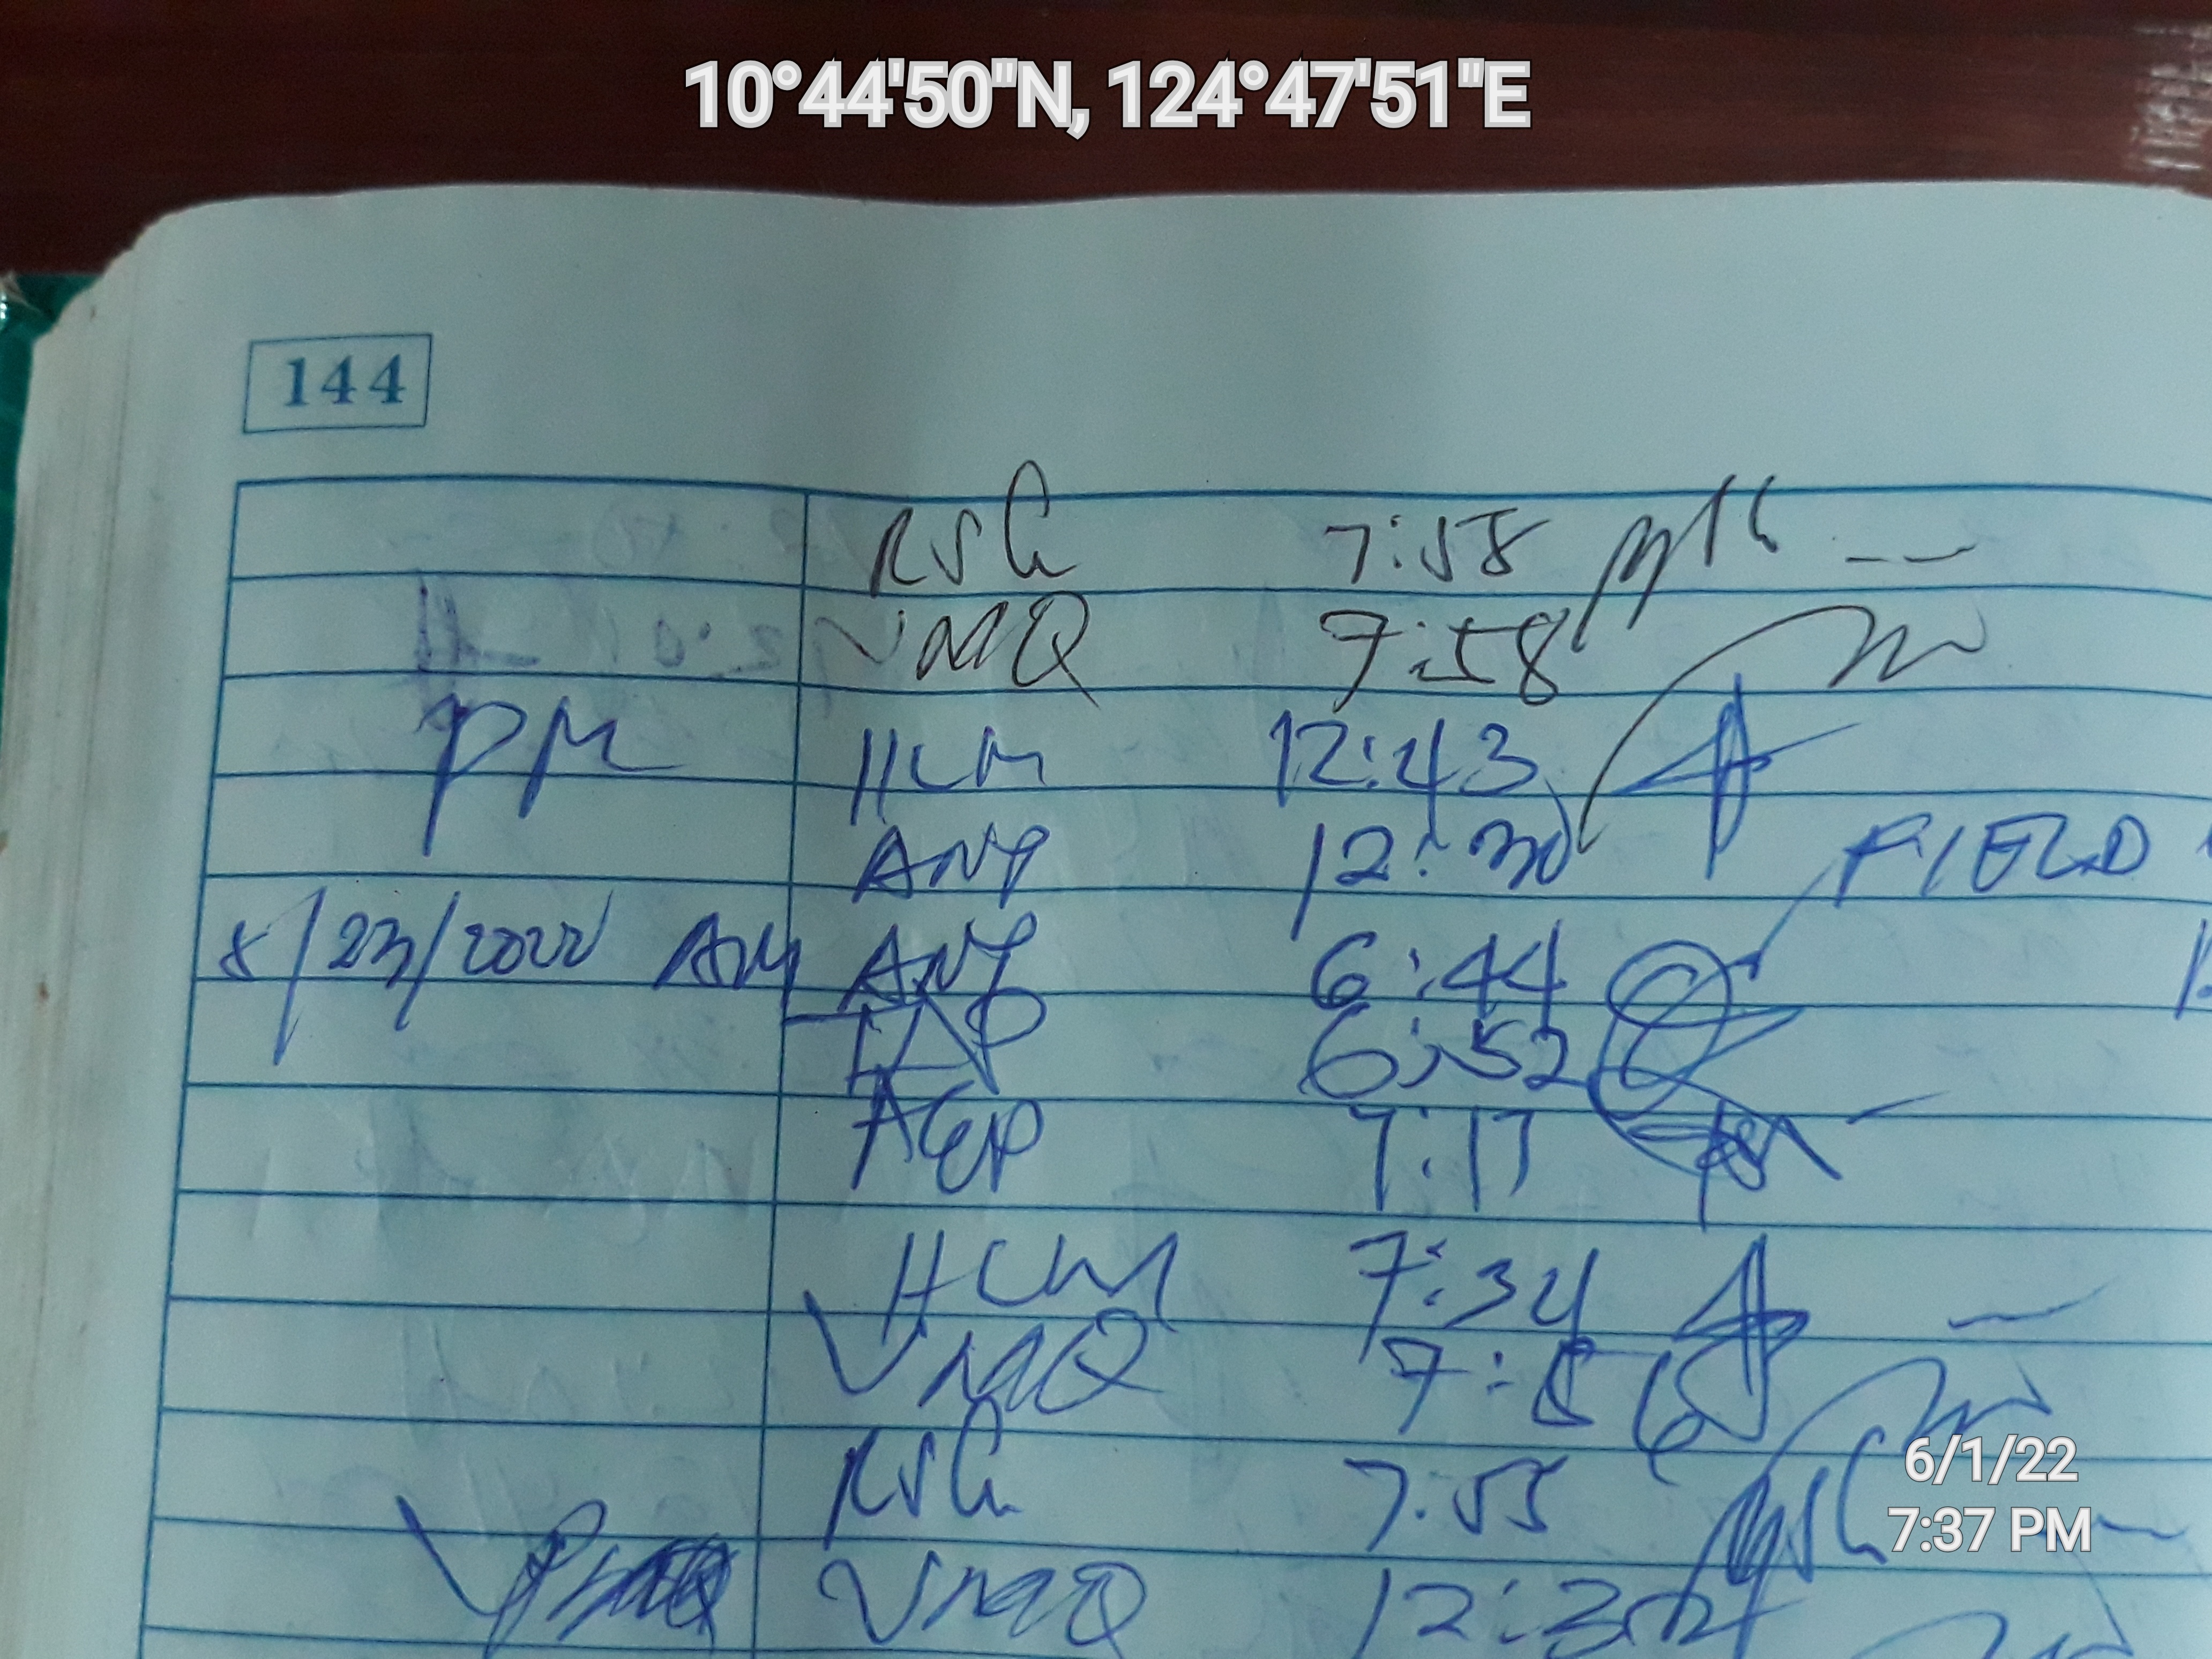 10°44'50"N, 124°47'51"E
144
RSG 7:58
VMQ 7:58
PM HCM 12:43
ANY 12:30 FIELD
8/23/2022 AM ANY 6:44
6:52
AGP 7:17
HCM 7:34
VMQ 7:56
RSG 7:55
VMQ
6/1/22
7:37 PM